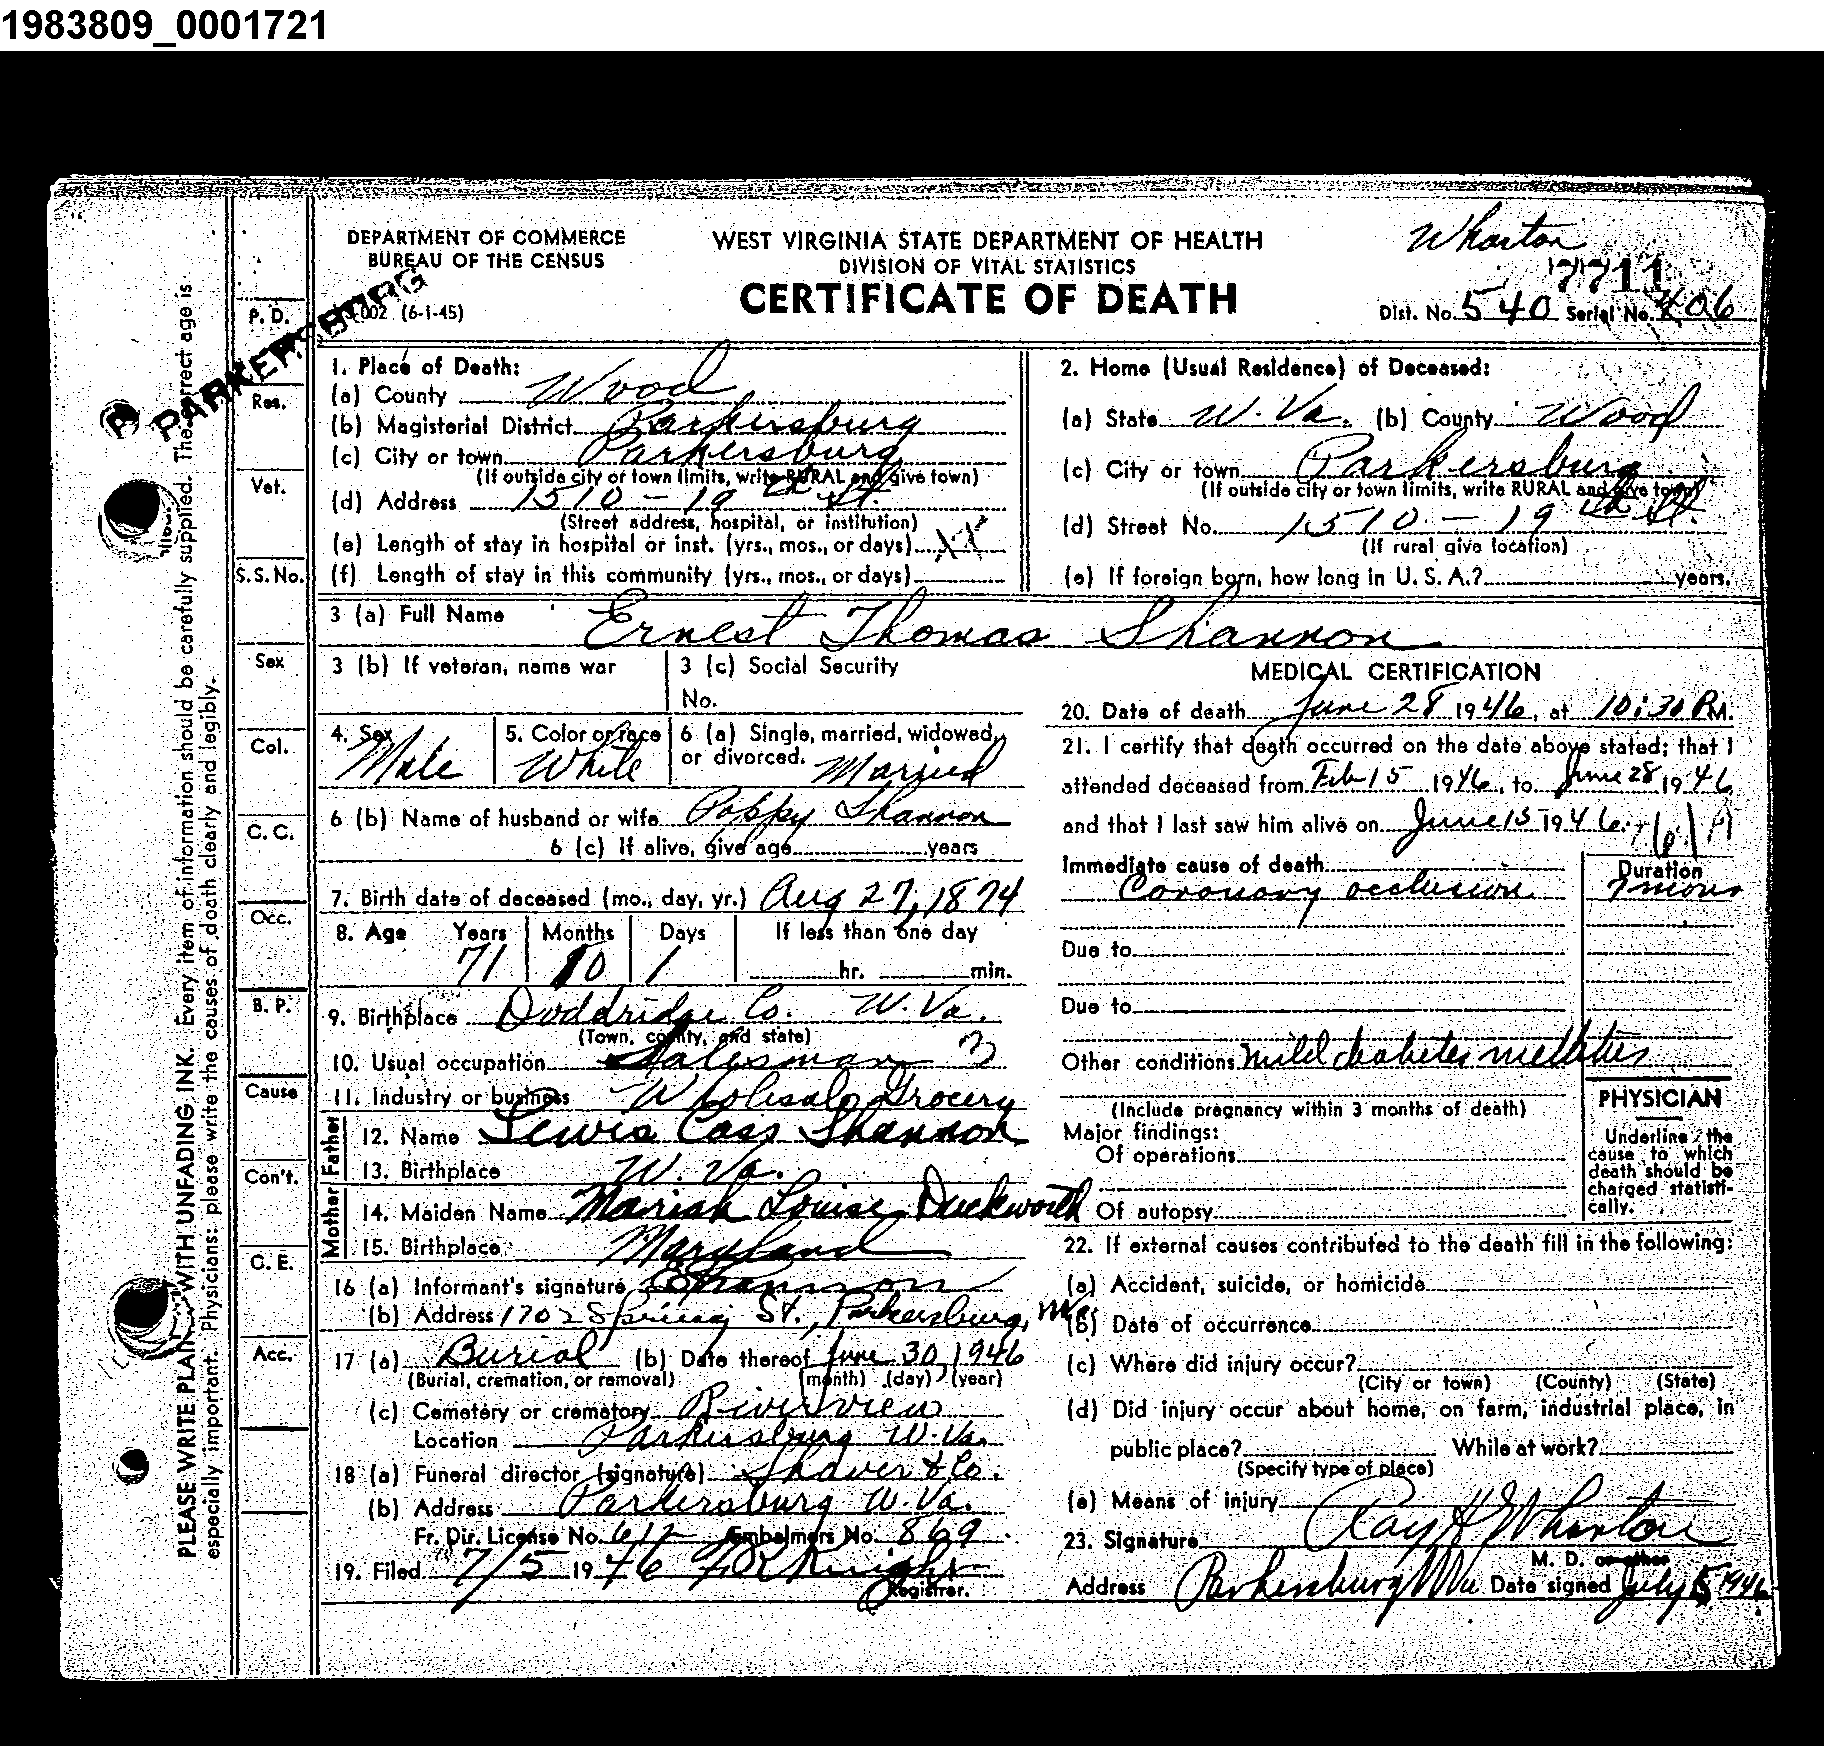 1983809_0001721
DEPARTMENT OF COMMERCE
BUREAU OF THE CENSUS
002 (6-1-45)
PARKERSBURG
WEST VIRGINIA STATE DEPARTMENT OF HEALTH
DIVISION OF VITAL STATISTICS
CERTIFICATE OF DEATH
Wharton
7711
Dist. No. 540 Serial No. 406
PLEASE WRITE PLAINLY WITH UNFADING INK. Every item of information should be carefully supplied. The correct age is
especially important. Physicians: please write the causes of death clearly and legibly.
P. D.
Res.
Vet.
S.S. No.
Sex
Col.
C. C.
Occ.
B. P.
Cause
Con't.
C. E.
Acc.
1. Place of Death:
(a) County Wood
(b) Magisterial District Parkersburg
(c) City or town Parkersburg
(If outside city or town limits, write RURAL and give town)
(d) Address 1510 - 19th St.
(Street address, hospital, or institution)
(e) Length of stay in hospital or inst. (yrs., mos., or days)
(f) Length of stay in this community (yrs., mos., or days)
2. Home (Usual Residence) of Deceased:
(a) State W. Va. (b) County Wood
(c) City or town Parkersburg
(If outside city or town limits, write RURAL and give town)
(d) Street No. 1510 - 19th St.
(If rural give location)
(e) If foreign born, how long in U. S. A.? years.
3 (a) Full Name Ernest Thomas Shannon
3 (b) If veteran, name war
3 (c) Social Security
No.
4. Sex Male
5. Color or race White
6 (a) Single, married, widowed,
or divorced. Married
6 (b) Name of husband or wife Poppy Shannon
6 (c) If alive, give age years
7. Birth date of deceased (mo., day, yr.) Aug 27, 1874
8. Age Years Months Days If less than one day
71 10 1 hr. min.
9. Birthplace Doddridge Co. W. Va.
(Town, county, and state)
10. Usual occupation Salesman
11. Industry or business Wholesale Grocery
Father
12. Name Lewis Cass Shannon
13. Birthplace W. Va.
Mother
14. Maiden Name Mariah Louise Duckworth
15. Birthplace Maryland
16 (a) Informant's signature Shannon
(b) Address 1702 Spring St., Parkersburg, W Va.
17 (a) Burial (b) Date thereof June 30, 1946
(Burial, cremation, or removal) (month) (day) (year)
(c) Cemetery or crematory Riverview
Location Parkersburg W. Va.
18 (a) Funeral director (signature) Shaver & Co.
(b) Address Parkersburg W. Va.
Fr. Dir. License No. 612 Embalmers No. 869
19. Filed 7/5 1946 Knight
Registrar.
MEDICAL CERTIFICATION
20. Date of death June 28 1946, at 10:30 P.M.
21. I certify that death occurred on the date above stated; that I
attended deceased from Feb 15 1946, to June 28 1946
and that I last saw him alive on June 15 1946
Immediate cause of death Duration
Coronary occlusion
Due to
Due to
Other conditions mild diabetes mellitus
(Include pregnancy within 3 months of death)
Major findings:
Of operations
Of autopsy
PHYSICIAN
Underline the
cause to which
death should be
charged statisti-
cally.
22. If external causes contributed to the death fill in the following:
(a) Accident, suicide, or homicide
(b) Date of occurrence
(c) Where did injury occur?
(City or town) (County) (State)
(d) Did injury occur about home, on farm, industrial place, in
public place? While at work?
(Specify type of place)
(e) Means of injury
23. Signature Ray H Wharton
M. D. or other
Address Parkersburg W Va Date signed July 5 1946